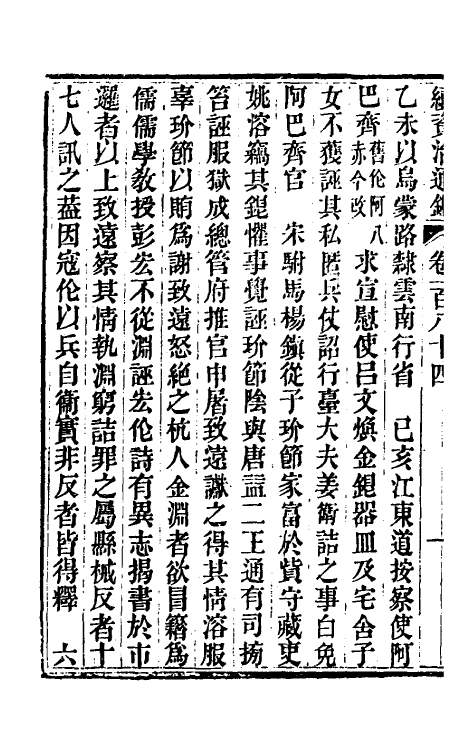 續資治通鑑 卷一百八十四
乙未以烏蒙路隸雲南行省 己亥江東道按察使阿
巴齊舊倫阿八赤今改求宣慰使呂文煥金銀器皿及宅舍子
女不獲誣其私匿兵仗詔行臺大夫姜衛詰之事白免
阿巴齊官 宋駙馬楊鎭從子玠節家富於貲守藏吏
姚溶竊其銀懼事覺誣玠節陰與唐謚二王通有司搒
笞誣服獄成總管府推官申屠致遠讞之得其情溶服
辜玠節以賄爲謝致遠怒絕之杭人金淵者欲冒籍爲
儒儒學敎授彭宏不從淵誣宏倫詩有異志揭書於市
邏者以上致遠察其情執淵窮詰罪之屬縣械反者十
七人訊之葢因寇倫以兵自衞實非反者皆得釋 六